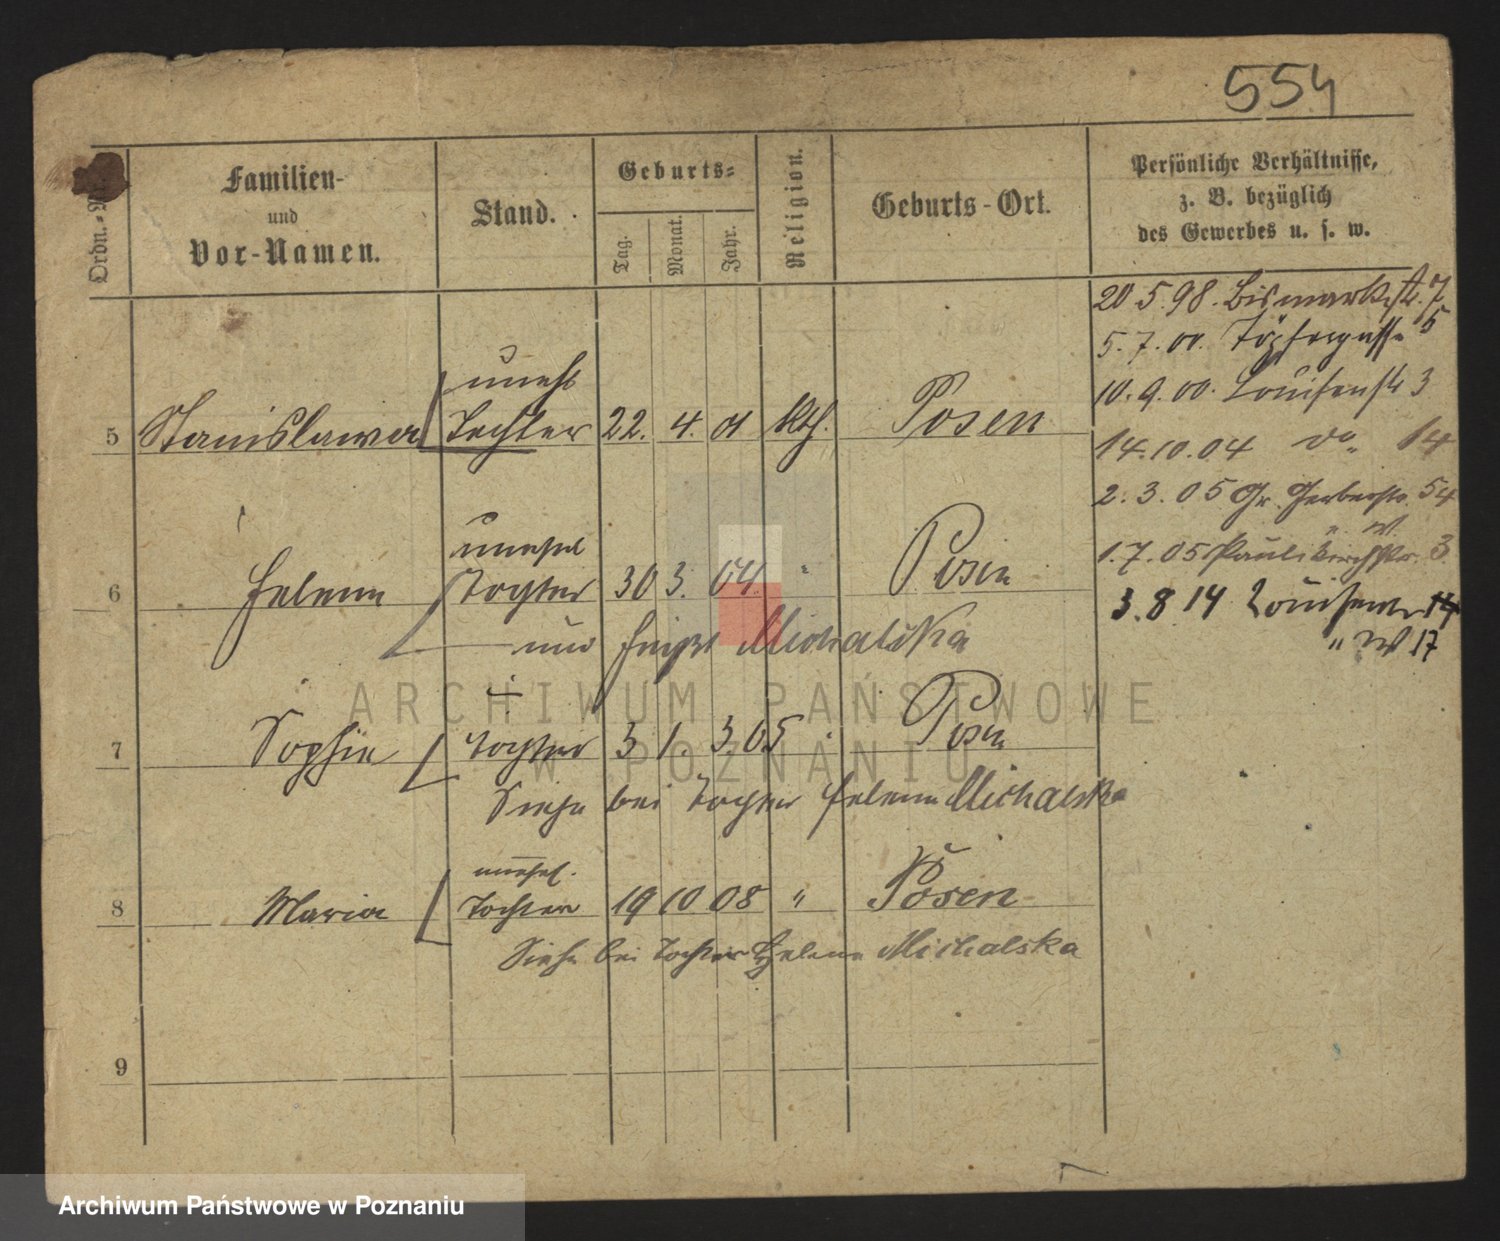 554
Ordn.-Nr.
Familien-
und
Vor-Namen.
Stand.
Geburts-
Tag.
Monat.
Jahr.
Religion.
Geburts-Ort.
Persönliche Verhältnisse,
z. B. bezüglich
des Gewerbes u. s. w.
20.5.98. Bismarckstr. 7
5.7.00. Töpfergasse 5
10.9.00. Louisenstr 3
14.10.04 do 14
2.3.05 Gr. Gerberstr. 54
1.7.05 Paulikirchstr. 3
3.8.14 Louisenstr 14
" 17
unehl
5 Stanislawa Tochter 22. 4. 01 kth. Posen
unehel
6 Helene Tochter 30 3. 04. " Posen
nun heißt Michalska
7 Sophie Tochter 31. 3. 05 " Posen
Siehe bei Tochter Helene Michalska
unehel.
8 Maria Tochter 19 10 08 " Posen
Siehe bei Tochter Helene Michalska
9
ARCHIWUM PAŃSTWOWE
W POZNANIU
Archiwum Państwowe w Poznaniu